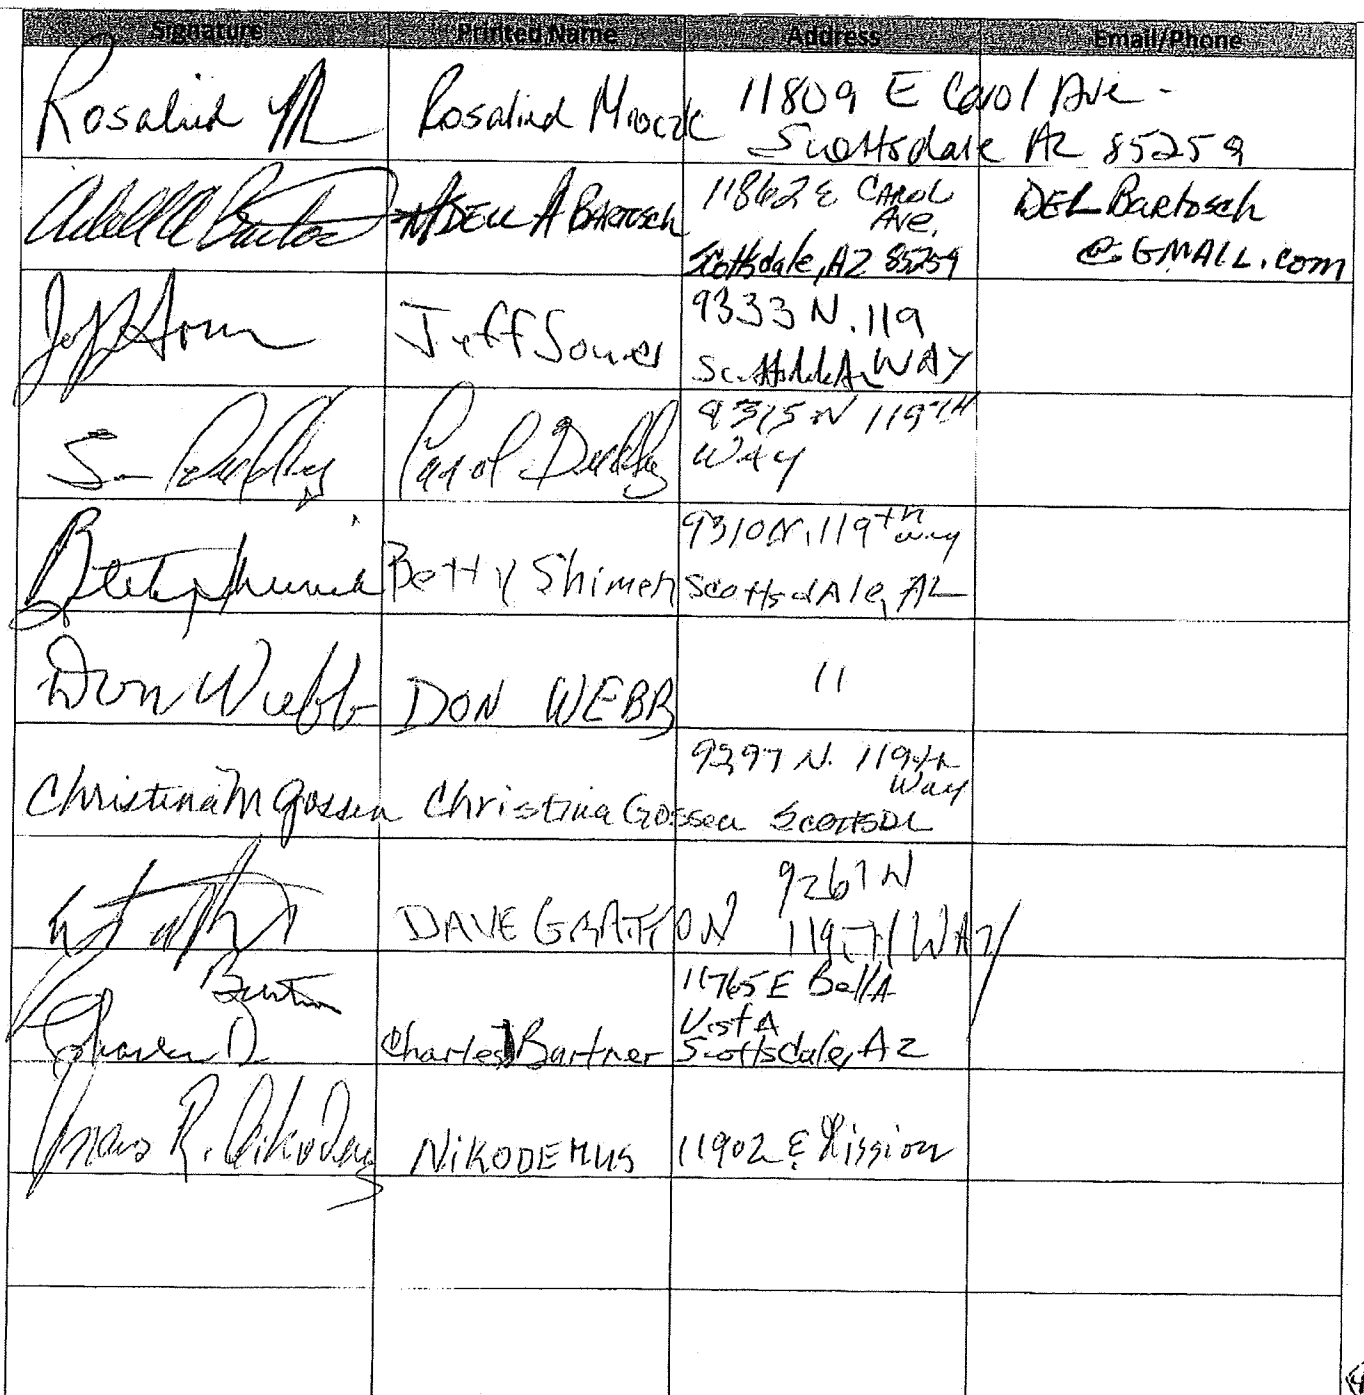 Signature Printed Name Address Email/Phone
Rosalind M Rosalind 11809 E Carol Ave -
Scottsdale AZ 85259
Adell A ADELL A BARTOSCH 11862 E CAROL
AVE,
Scottsdale, AZ 85259
DEL Bartosch
@GMAIL.com
Jeff 9333 N. 119
WAY
Carol Dudley 9315 N 119TH
Way
Betty Shimek 9310 N. 119th way
Scottsdale, AZ
Don Webb DON WEBB 11
Christina M Gossen Christina Gossen 9297 N. 119th
Way
SCOTTSDL
DAVE GRAFTON 9267 N
119TH WAY
Charles D Charles Bartner 11765 E BellA
VistA
Scottsdale, AZ
R. Nikodemus NIKODEMUS 11902 E Mission